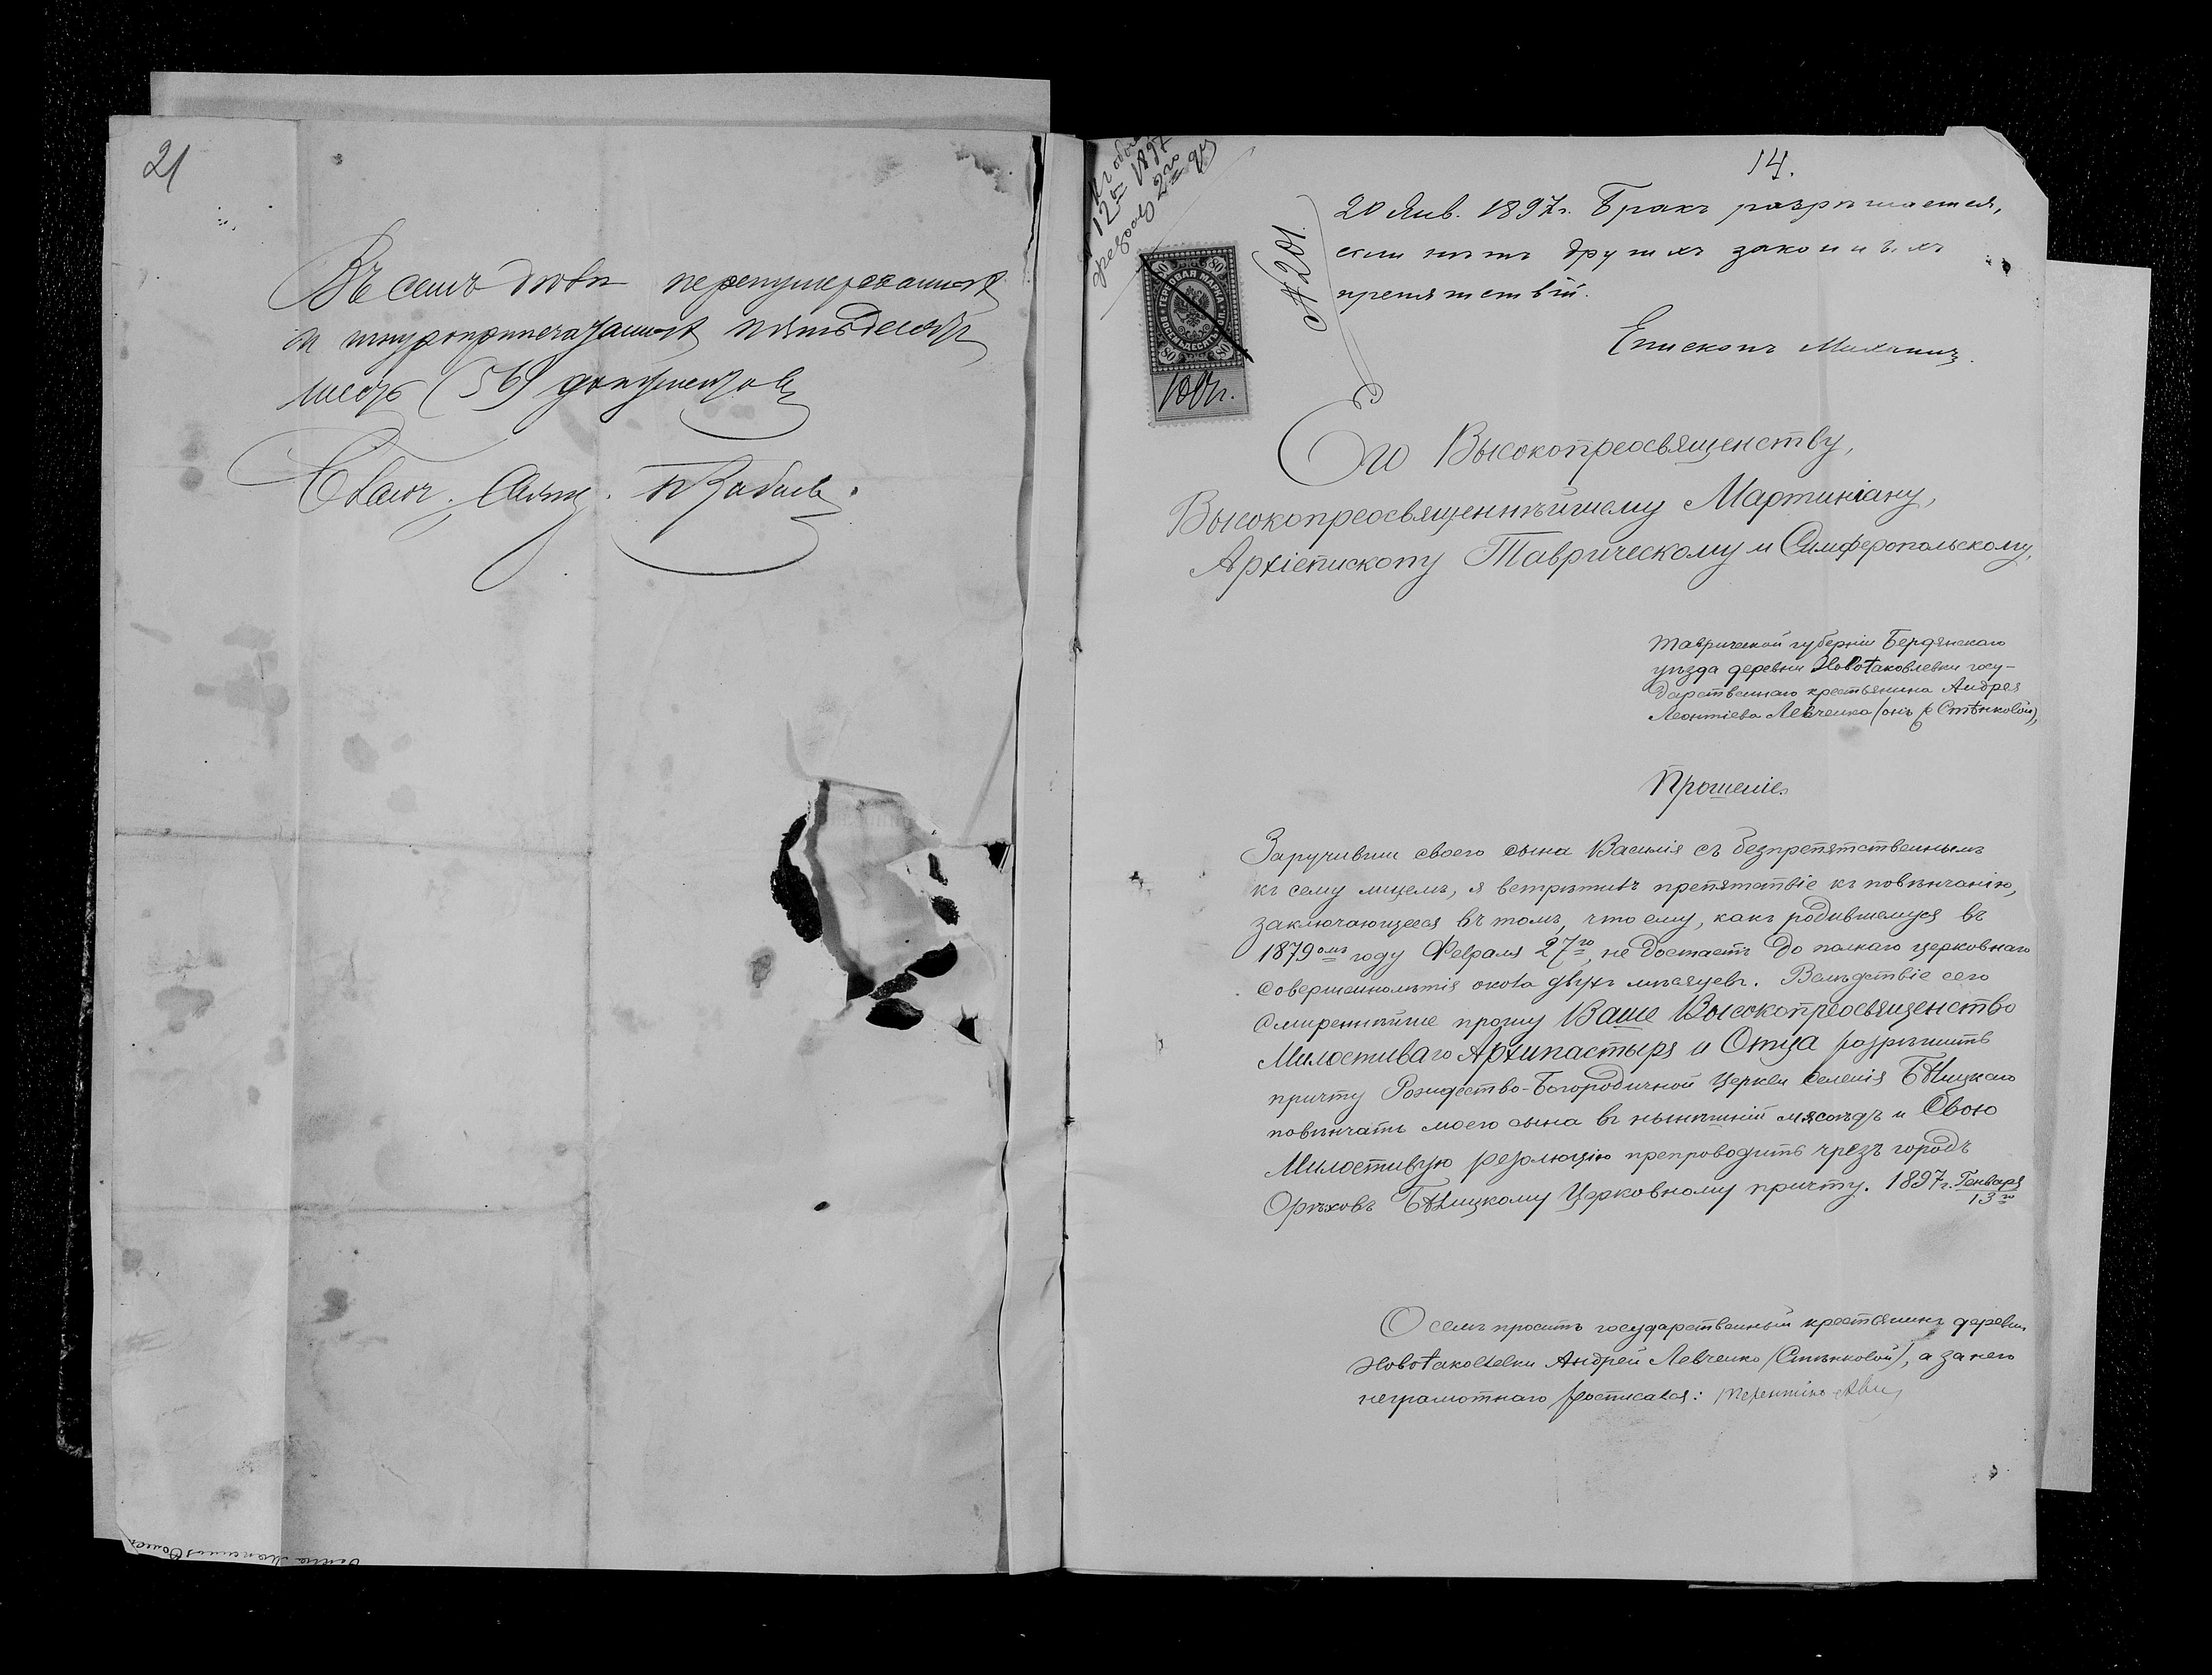 21
Въ семъ дѣлѣ перенумерованныхъ
и шнуроприпечатанныхъ пятьдесятъ
шесть (56) документовъ
Свящ.
14.
1897
№ 201.
20 Янв. 1897 г. Бракъ разрѣшается,
если нѣтъ другихъ законныхъ
препятствій.
Епископъ Михаилъ.
ГЕРБОВАЯ МАРКА
80
Его Высокопреосвященству,
Высокопреосвященнѣйшему Мартиніану,
Архіепископу Таврическому и Симферопольскому,
Таврической губерніи Бердянскаго
уѣзда деревни Новоіаковлевки госу-
дарственнаго крестьянина Андрея
Леонтіева Левченка (онъ и Стѣнковой),
Прошеніе.
Заручивши своего сына Василія съ безпрепятственнымъ
къ сему лицемъ, я встрѣтилъ препятствіе къ повѣнчанію,
заключающееся въ томъ, что ему, какъ родившемуся въ
1879омъ году Февраля 27го, не достаетъ до полнаго церковнаго
совершеннолѣтія около двухъ мѣсяцевъ. Вслѣдствіе сего
смиреннѣйше прошу Ваше Высокопреосвященство
Милостиваго Архипастыря и Отца разрѣшить
причту Рождество-Богородичной Церкви селенія Бѣлицкаго
повѣнчать моего сына въ нынѣшній мясоѣдъ и Свою
Милостивую резолюцію препроводить чрезъ городъ
Орѣховъ Бѣлицкому Церковному причту. 1897 г. Генваря
13го
О семъ проситъ государственный крестьянинъ деревни
Новоіаковлевки Андрей Левченко (Стѣнковой), а за него
неграмотнаго росписался: